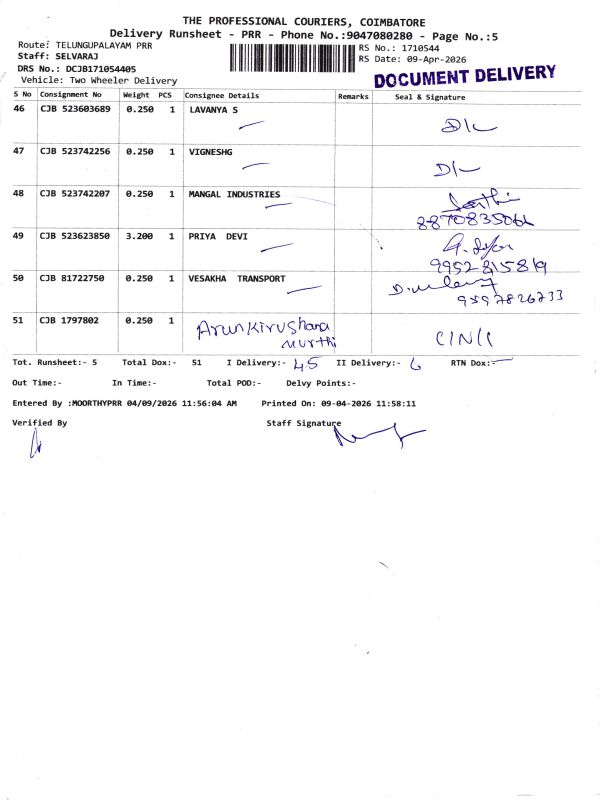 THE PROFESSIONAL COURIERS, COIMBATORE
Delivery Runsheet - PRR - Phone No.:9047080280 - Page No.:5
Route: TELUNGUPALAYAM PRR
Staff: SELVARAJ
DRS No.: DCJB171054405
Vehicle: Two Wheeler Delivery
RS No.: 1710544
RS Date: 09-Apr-2026
DOCUMENT DELIVERY
S No Consignment No Weight PCS Consignee Details Remarks Seal & Signature
46 CJB 523603689 0.250 1 LAVANYA S D/L
47 CJB 523742256 0.250 1 VIGNESHG D/L
48 CJB 523742207 0.250 1 MANGAL INDUSTRIES
49 CJB 523623850 3.200 1 PRIYA DEVI
9952815819
50 CJB 81722750 0.250 1 VESAKHA TRANSPORT
9597826733
51 CJB 1797802 0.250 1 Arunkirushana
murthi
Tot. Runsheet:- 5 Total Dox:- 51 I Delivery:- 45 II Delivery:- 6 RTN Dox:-
Out Time:- In Time:- Total POD:- Delvy Points:-
Entered By :MOORTHYPRR 04/09/2026 11:56:04 AM Printed On: 09-04-2026 11:58:11
Verified By Staff Signature